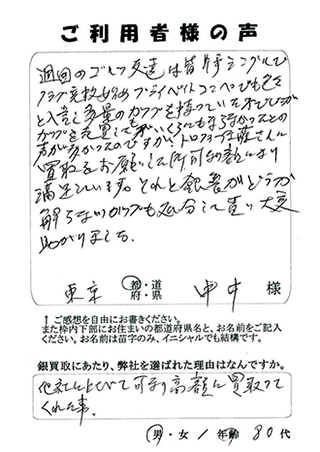 ご利用者様の声
週回のゴルフ友達は皆片手シングルで
クラブ競技始めプライベイトコンペでも色々
と入賞し多量のカップを持っていたれですが
カップを売置しても
声が多かったのですが、トロフィー佐藤さんに
買取をお願いした所可成の額になり
満足しています。それと銀書がどうか
解らないカップも処分して貰い大変
助かりました。
東京 都・道 府・県 中中 様
↑ご感想を自由にお書きください。
また枠内下部にお住まいの都道府県名と、お名前をご記入
ください。お名前は苗字のみ、イニシャルでも結構です。
銀買取にあたり、弊社を選ばれた理由はなんですか。
他社に比べて可成り高額に買取って
くれた事。
男・女/年齢 80代